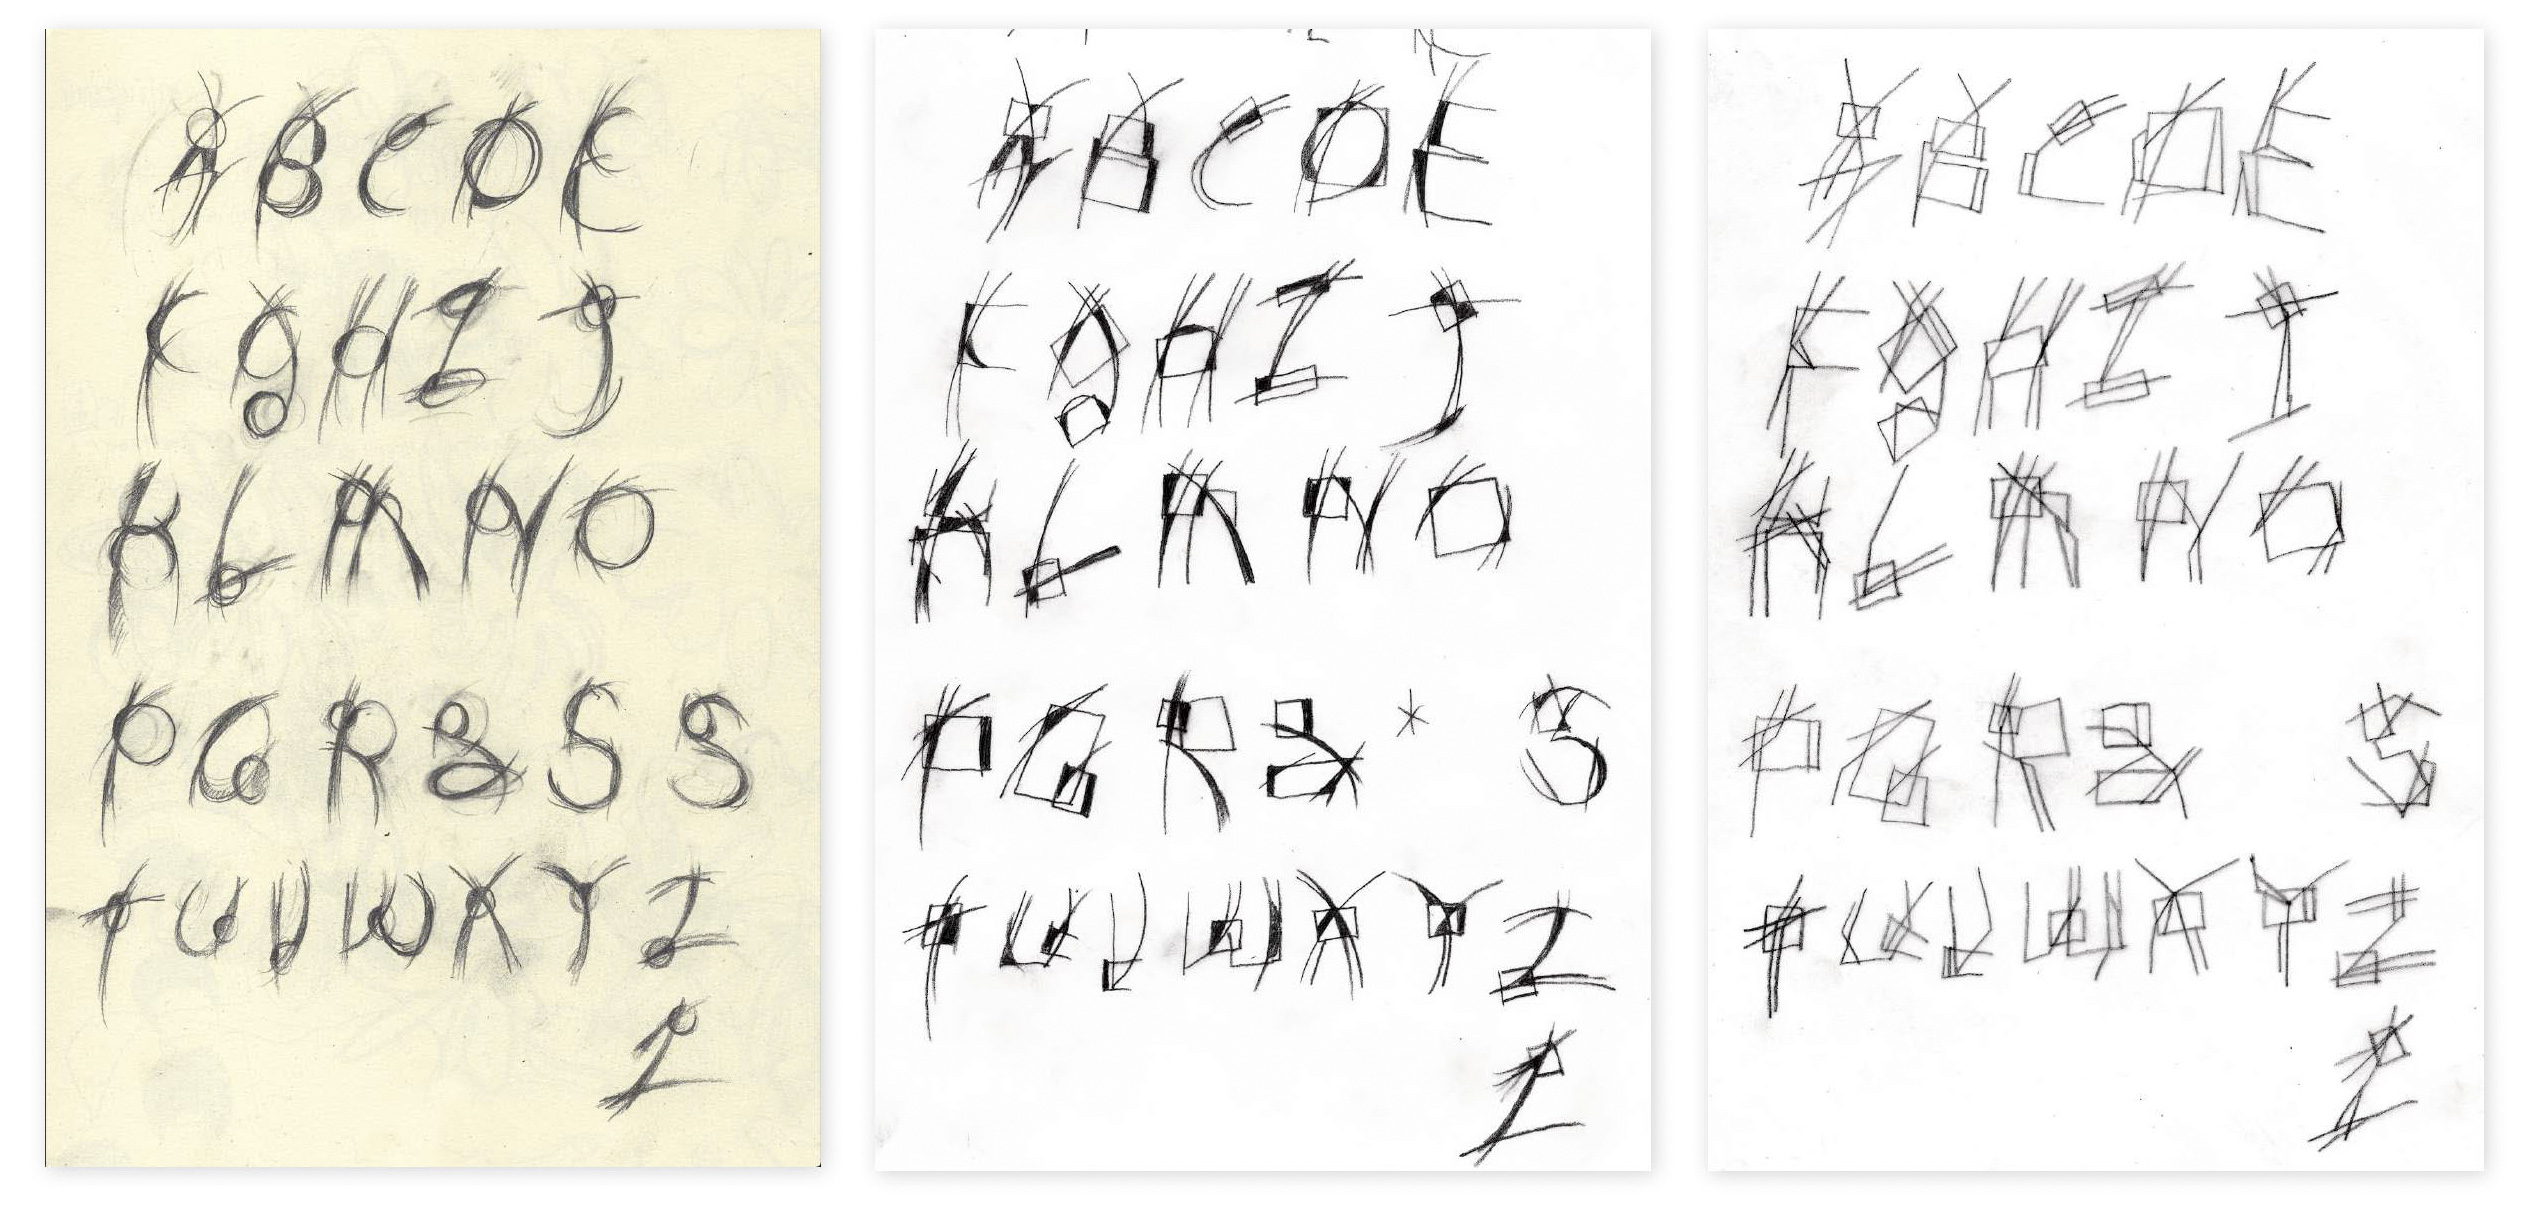 A B C D E
F g H I J
K L M N O
P Q R S S
T U V W X Y Z
Z
A B C D E
F g H I J
K L M N O
P Q R * S
T U V W X Y Z
Z
A B C D E
F g H I J
K L M N O
P Q R S
T U V W X Y Z
Z